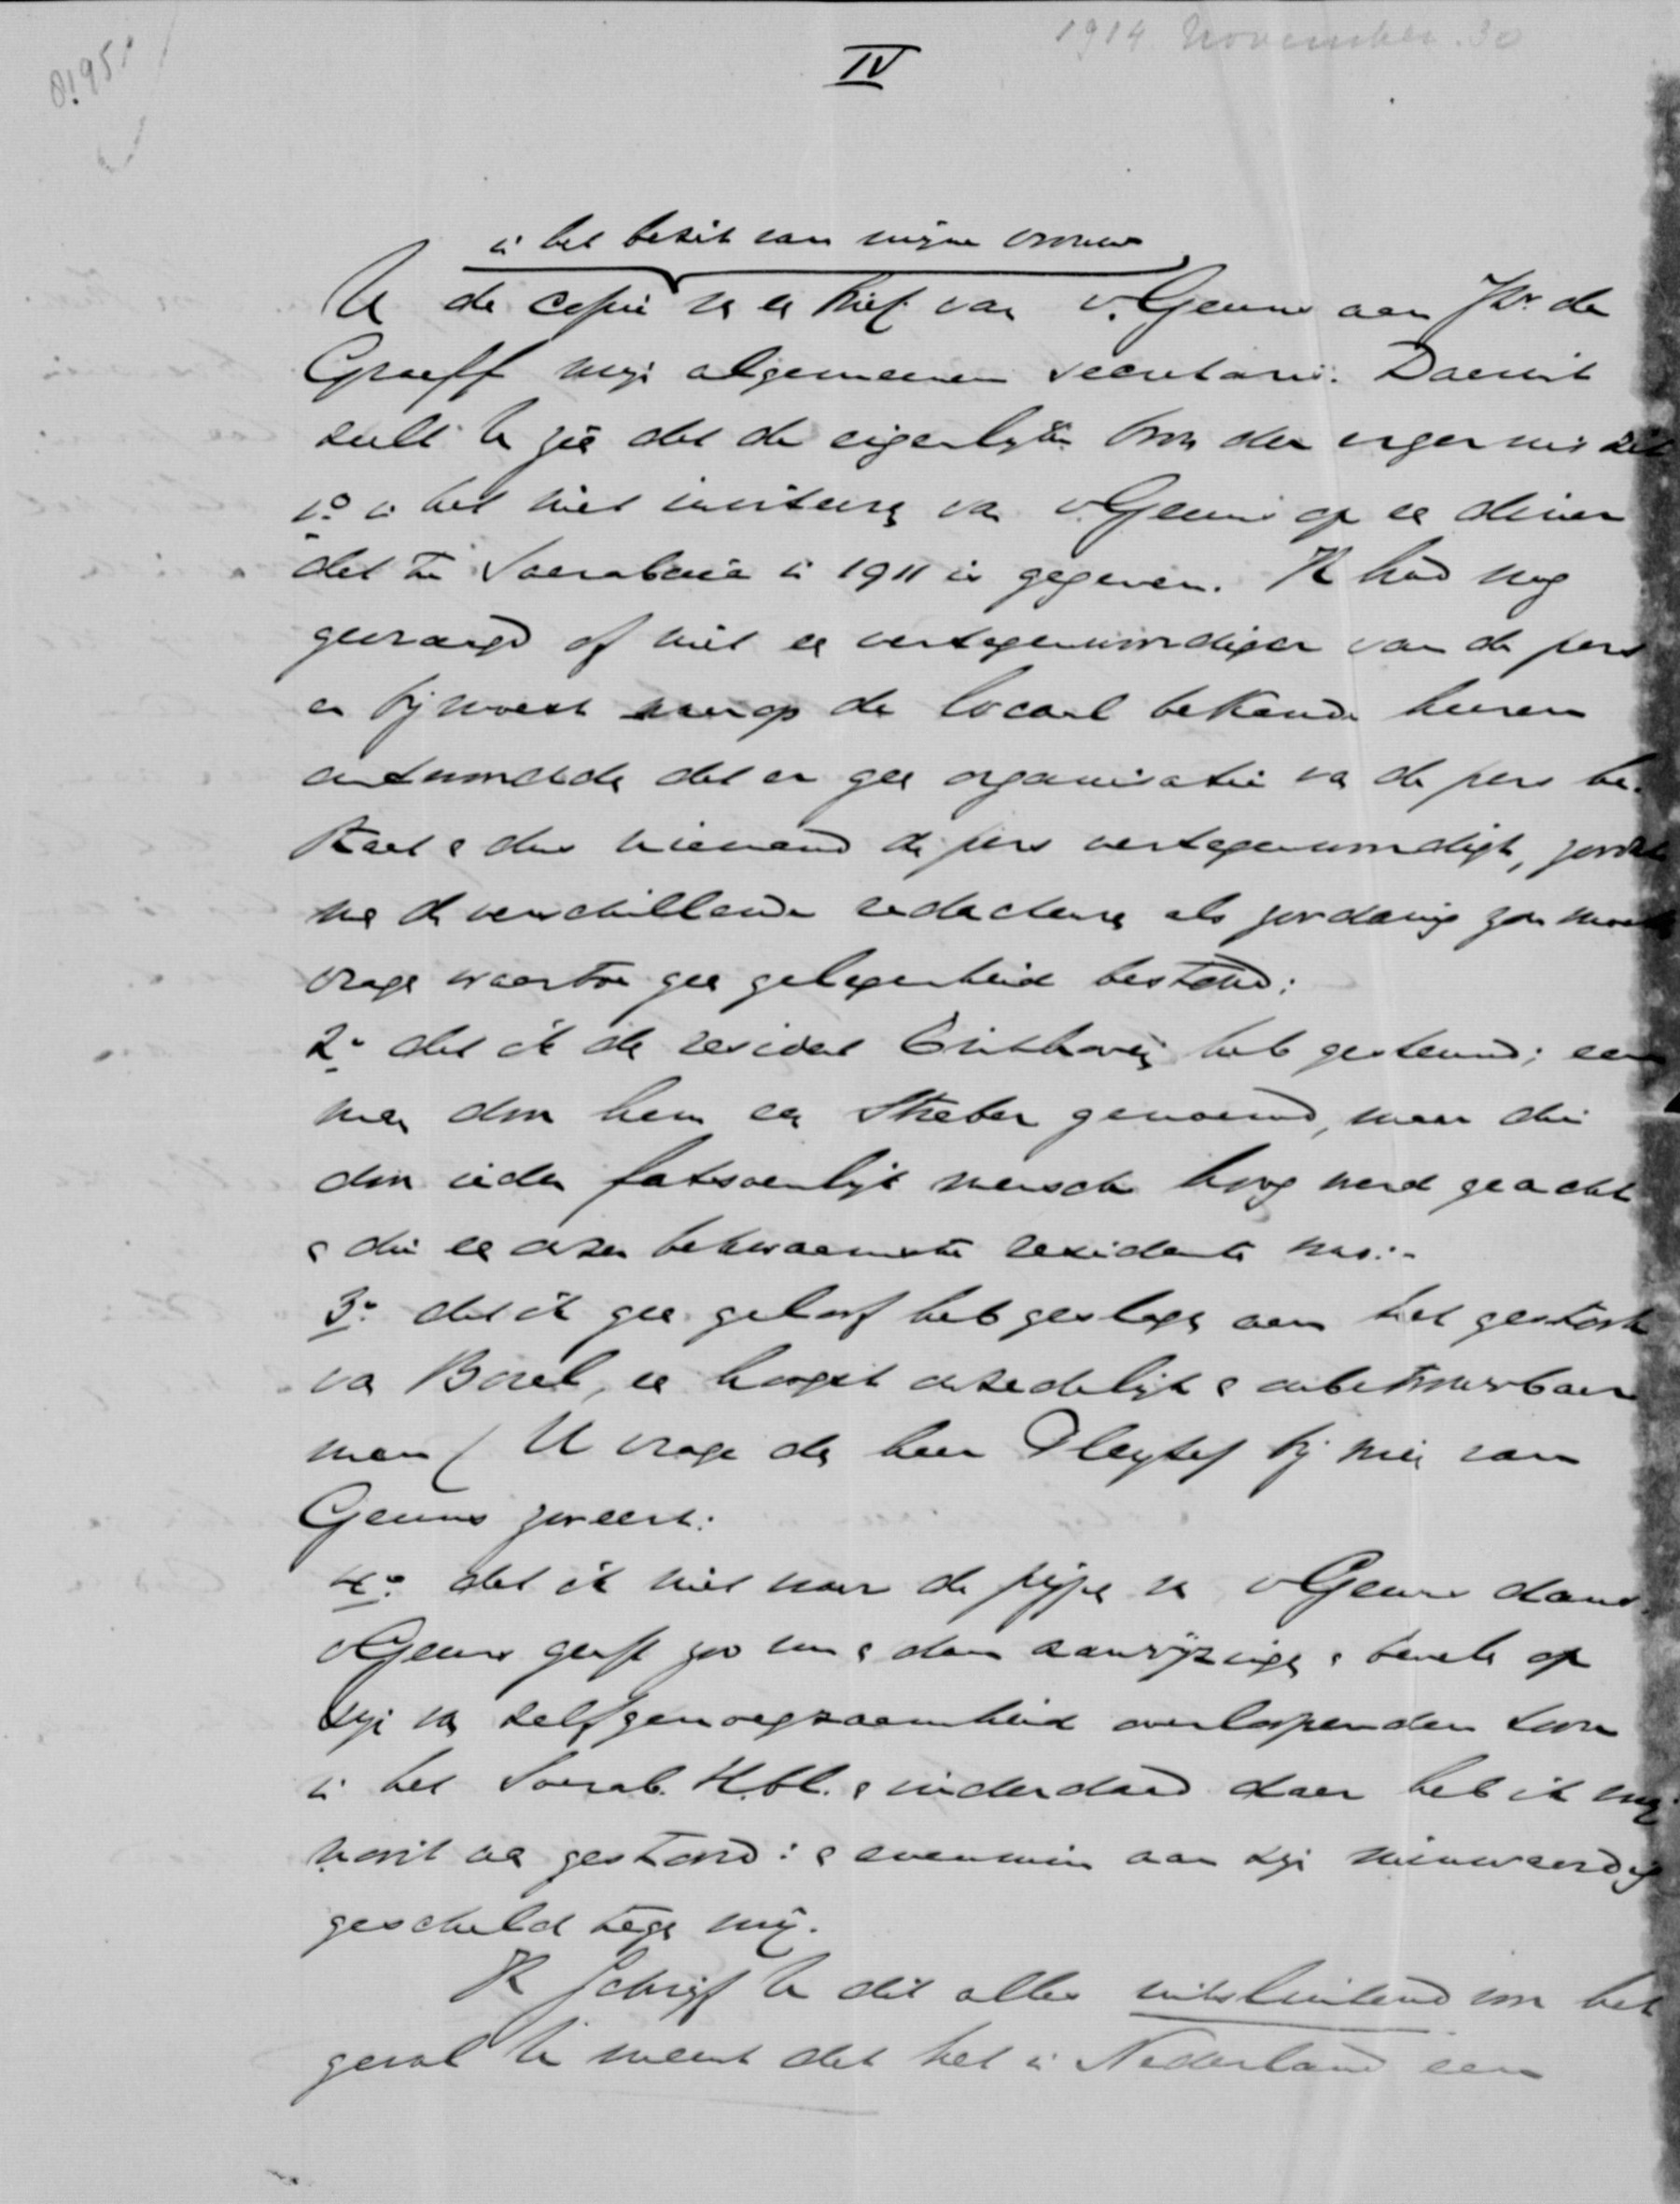 1914 November 30
IV
i het bezit van mijne vrouw
U de copie v e brief van v. Geuns aan Jhr. de
Graeff mijn algemeenen secretaris. Daaruit
zult U zie dat de eigenlijke bron der ergernis zit
1o i het niet inviteeren van v. Geuns op ee diner
dat te Soerabaia i 1911 is gegeven. Ik had nog
gevraagd of niet ee vertegenwoordiger van de pers
er bij moest waarop de locaal bekende heeren
antwoordde dat er gee organisatie va de pers be-
staat & dus niemand de pers vertegenwoordigt, zoodat
me de verschillende redacteurs als zoodanig zou moete
vrage waartoe gee gelegenheid bestond:
2o dat ik de resident heb gesteund; een
man door hem een Streber genoemd, maar die
door ieder fatsoenlijk mensch hoog werd geacht
& die ee onzer bekwaamste residente was:-
3o dat ik gee geloof heb geslage aan het gestook
va Borel, ee hoogst onzedelijk & onbetrouwbaar
man ( U vrage de heer Pleyte) bij wie van
Geuns zweert:
4o dat ik niet naar de pijpe va v Geuns dans.
v Geuns geeft zoo nu & dan aanwijzinge & bevele op
zijn va zelfgenoegzaamheid overloopenden toon
i het Soerab. Hbl. & inderdaad daar heb ik mij
nooit aa gestoord: & evenmin aan zijn minwaardig
gescheld tege mij.
Ik schrijf U dit alles uitsluitend voor het
geval U meent dat het i Nederland een